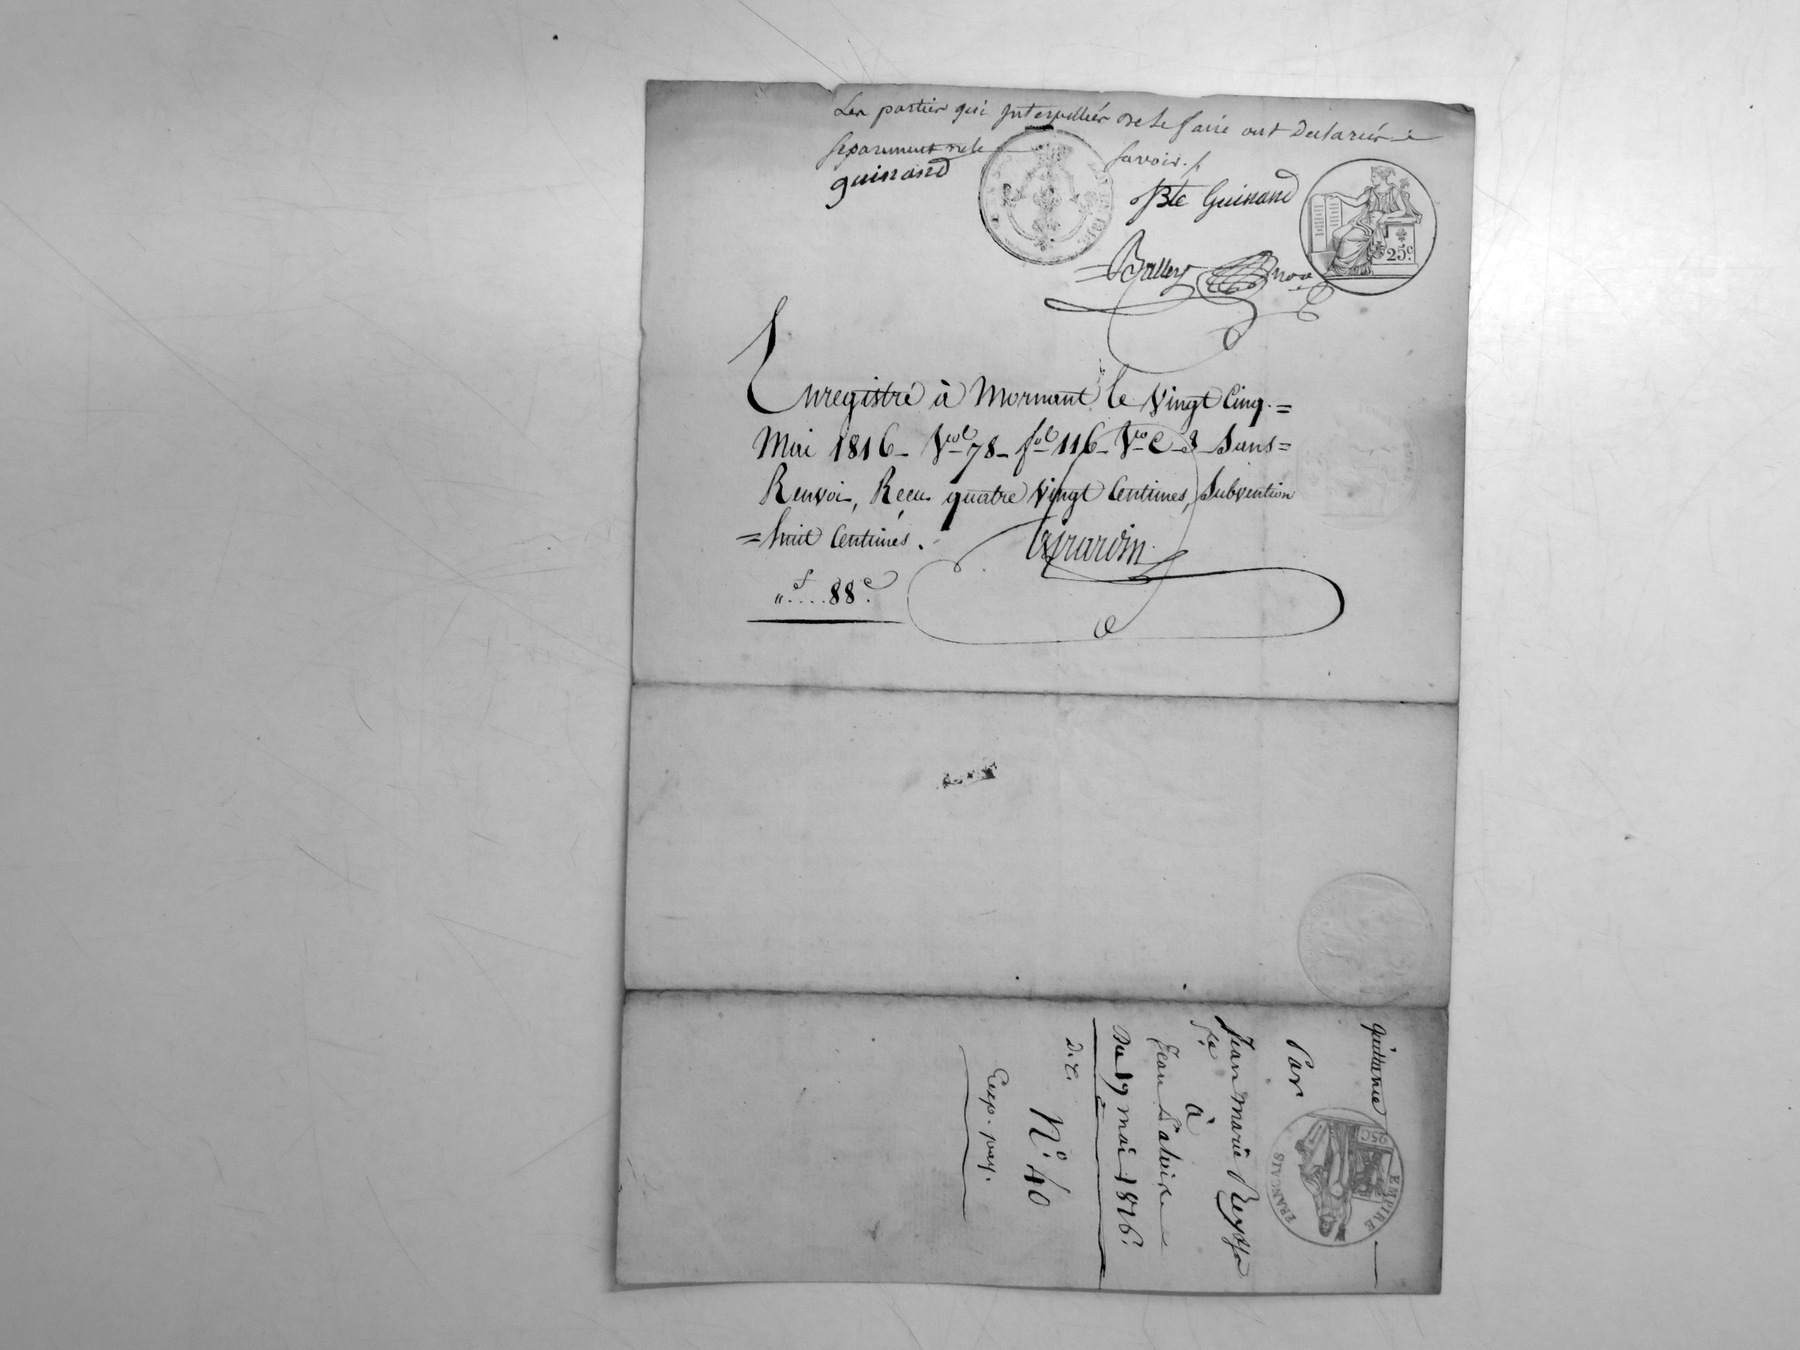 Les parties qui Interpellées de le faire ont Declarées
separement ne le savoir
guinand
Bte Guinand
25c.
Enregistré à Mornant le Vingt Cinq.=
Mai 1816_ Vol 78_ fol 116_ Vo C 3 Sans=
Renvoi, Recu quatre Vingt Centimes, Subvention
=huit Centimes.
Girardin
"f....88c.
Quittance
Par
Jean Marie
à
Jean
Du 19 mai 1816.
D.C.
No. 40
Exp. pay.
25C
EMPIRE FRANCAIS